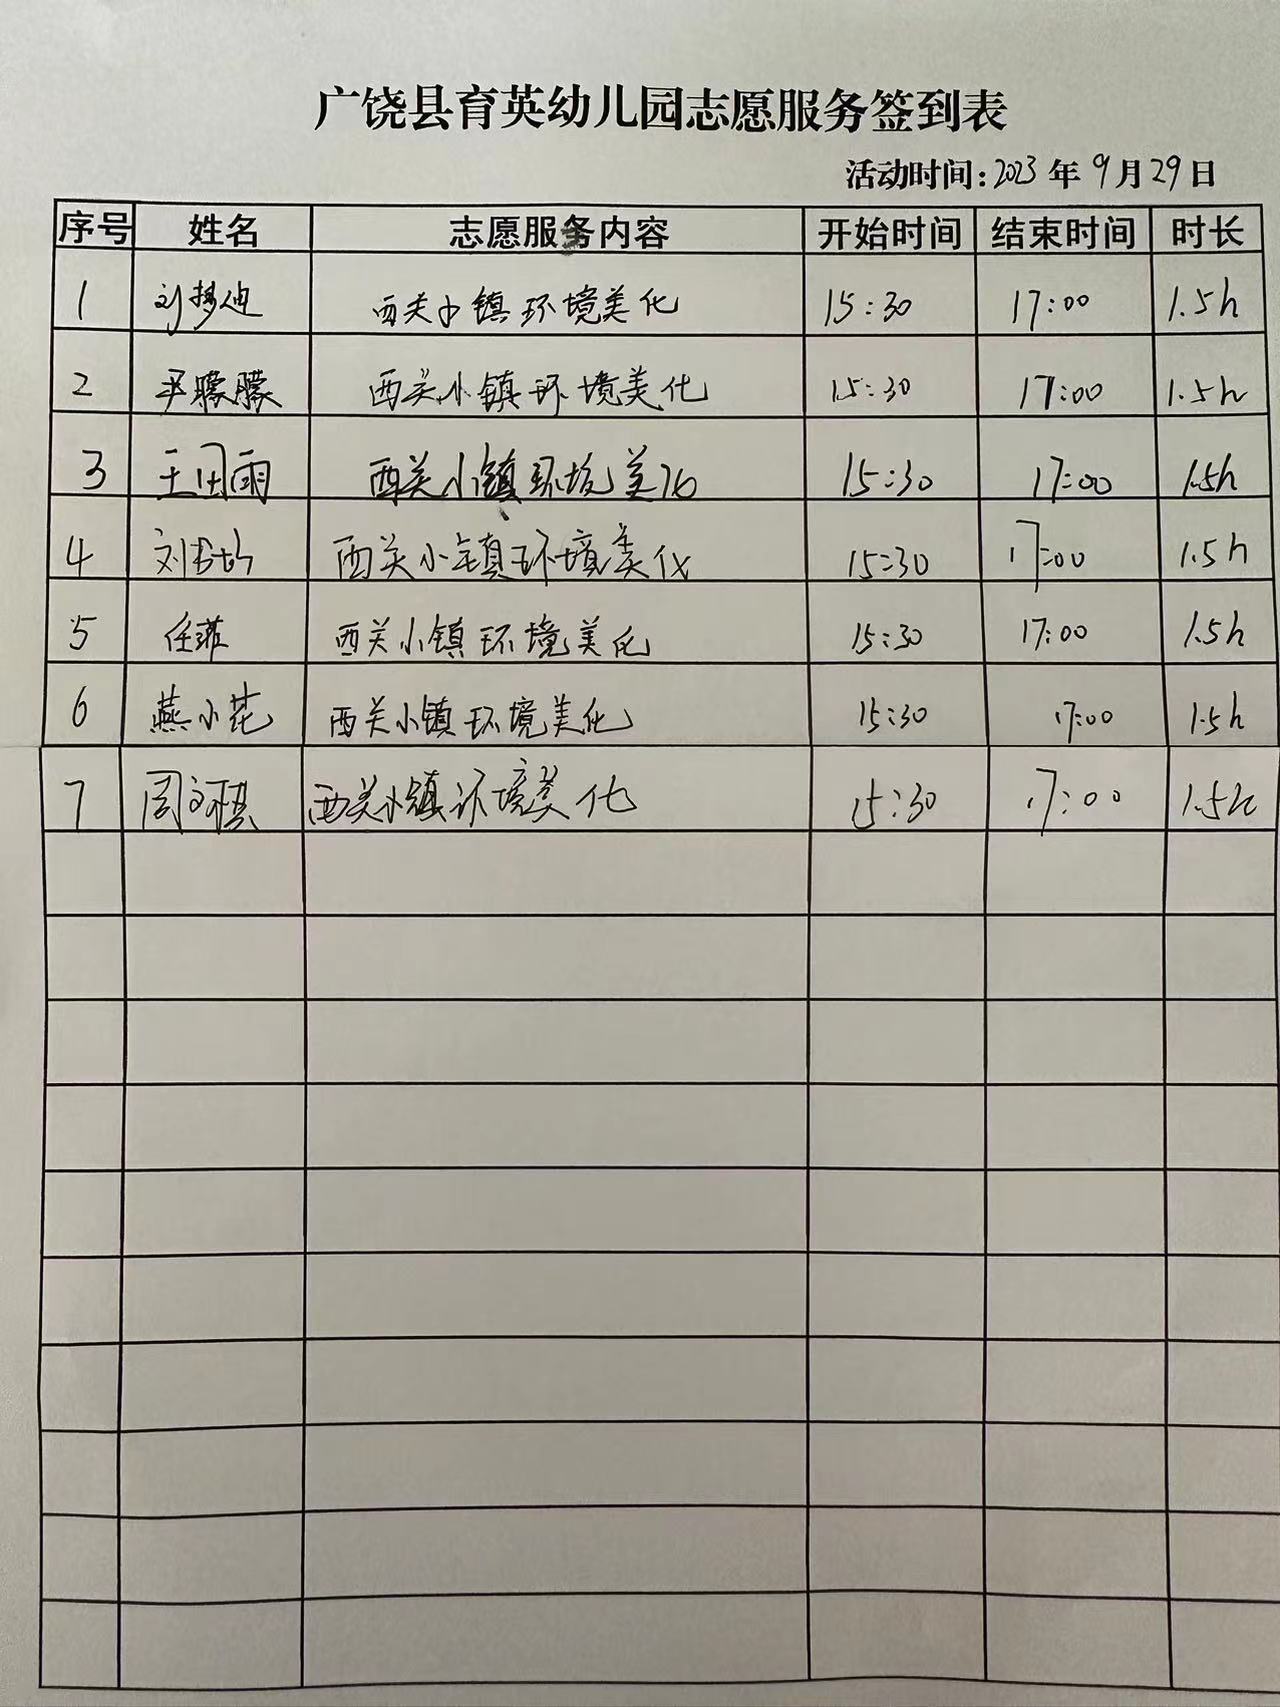 广饶县育英幼儿园志愿服务签到表
活动时间:2023年9月29日
序号 姓名 志愿服务内容 开始时间 结束时间 时长
1 刘梦迪 西关小镇环境美化 15:30 17:00 1.5h
2 平朦朦 西关小镇环境美化 15:30 17:00 1.5h
3 王田雨 西关小镇环境美化 15:30 17:00 1.5h
4 刘 西关小镇环境美化 15:30 17:00 1.5h
5 任菲 西关小镇环境美化 15:30 17:00 1.5h
6 燕小花 西关小镇环境美化 15:30 17:00 1.5h
7 周文祺 西关小镇环境美化 15:30 17:00 1.5h